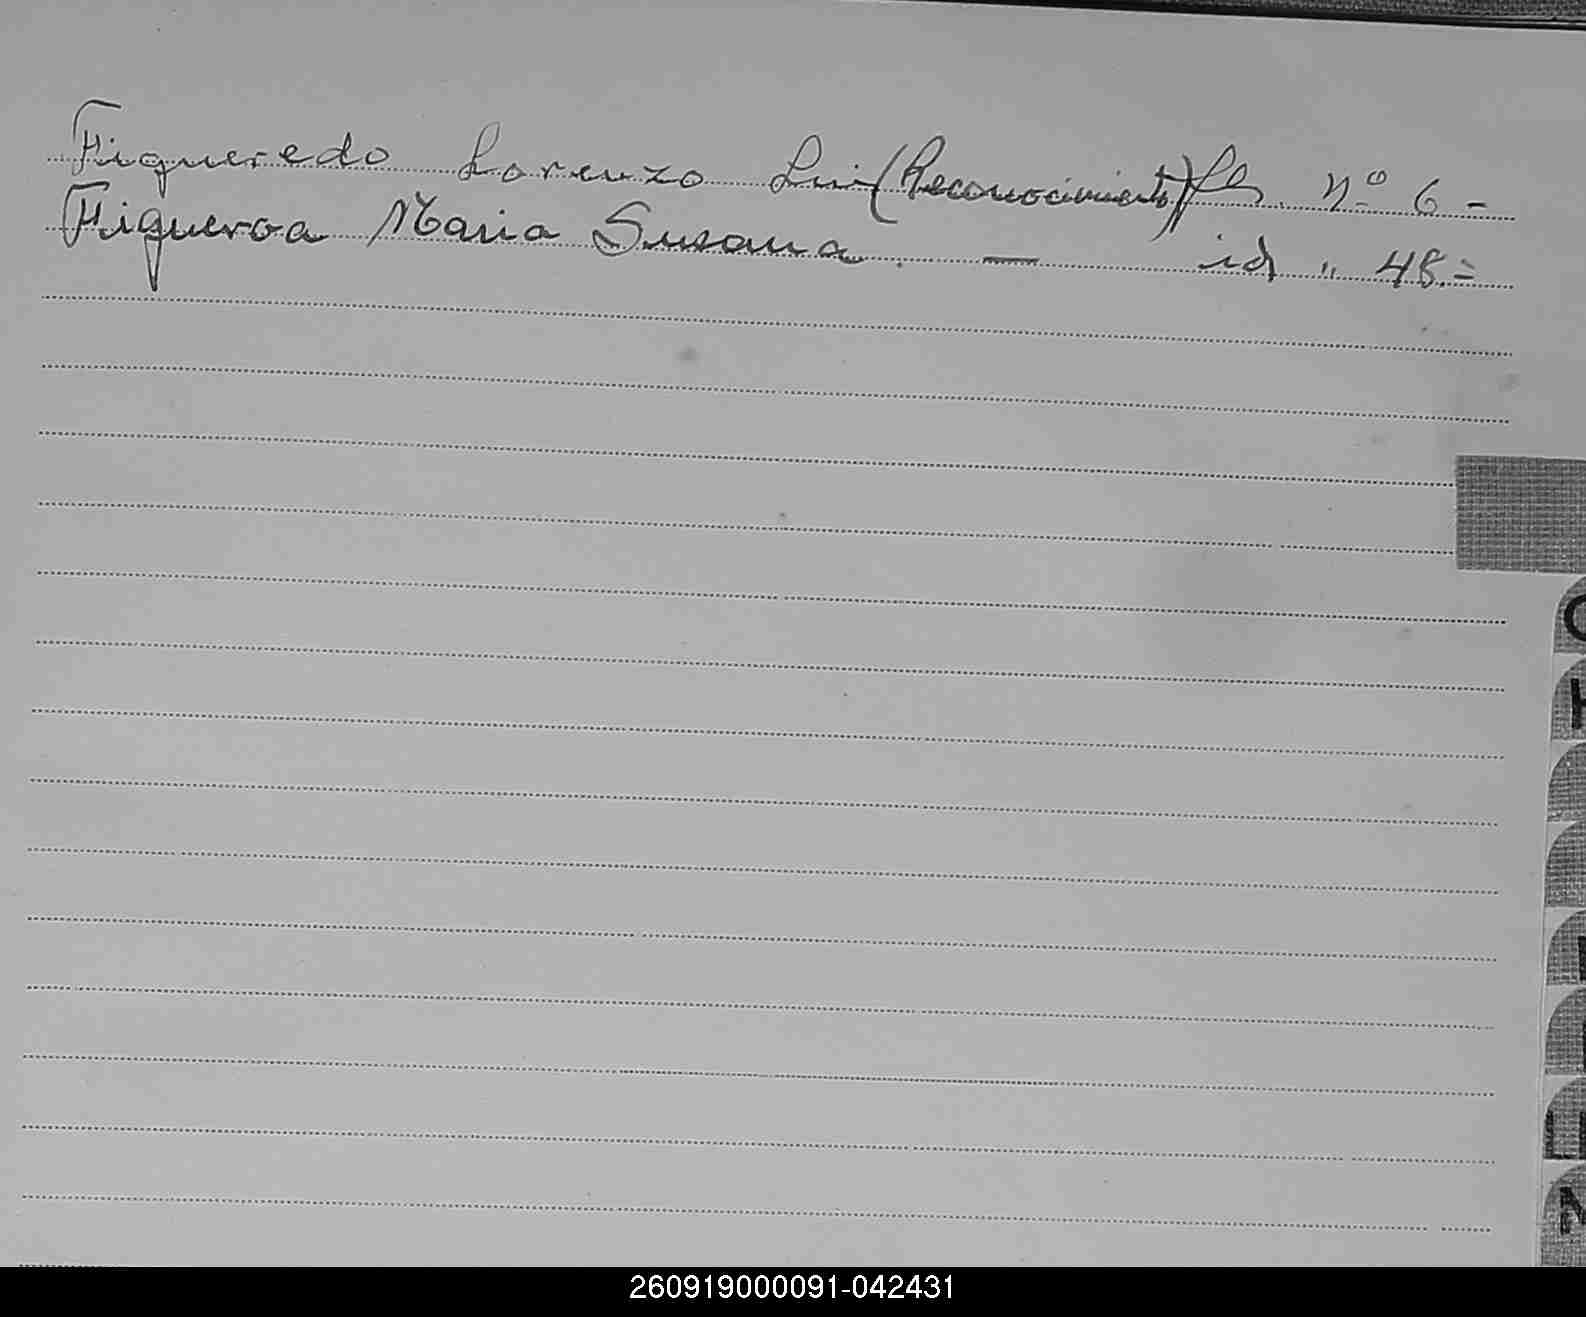 Figueredo Lorenzo Luis (Reconocimiento) fls. nº 6 -
Figueroa Maria Susana. — id " 48.=
G
H
L
N
260919000091-042431